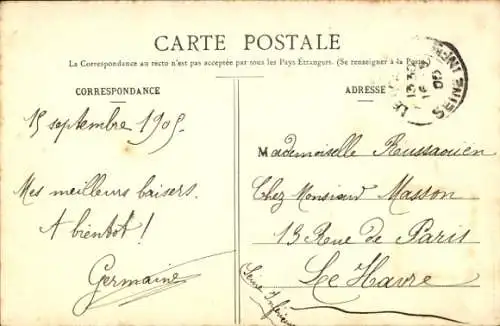 CARTE POSTALE
La Correspondance au recto n'est pas acceptée par tous les Pays Étrangers. (Se renseigner à la Poste)
CORRESPONDANCE
15 septembre 1905.
Mes meilleurs baisers.
A bientôt!
Germaine
ADRESSE
Mademoiselle
Chez Monsieur Masson
13 Rue de Paris
Le Havre
Seine Inférieure
LE
SEINE INFÉ